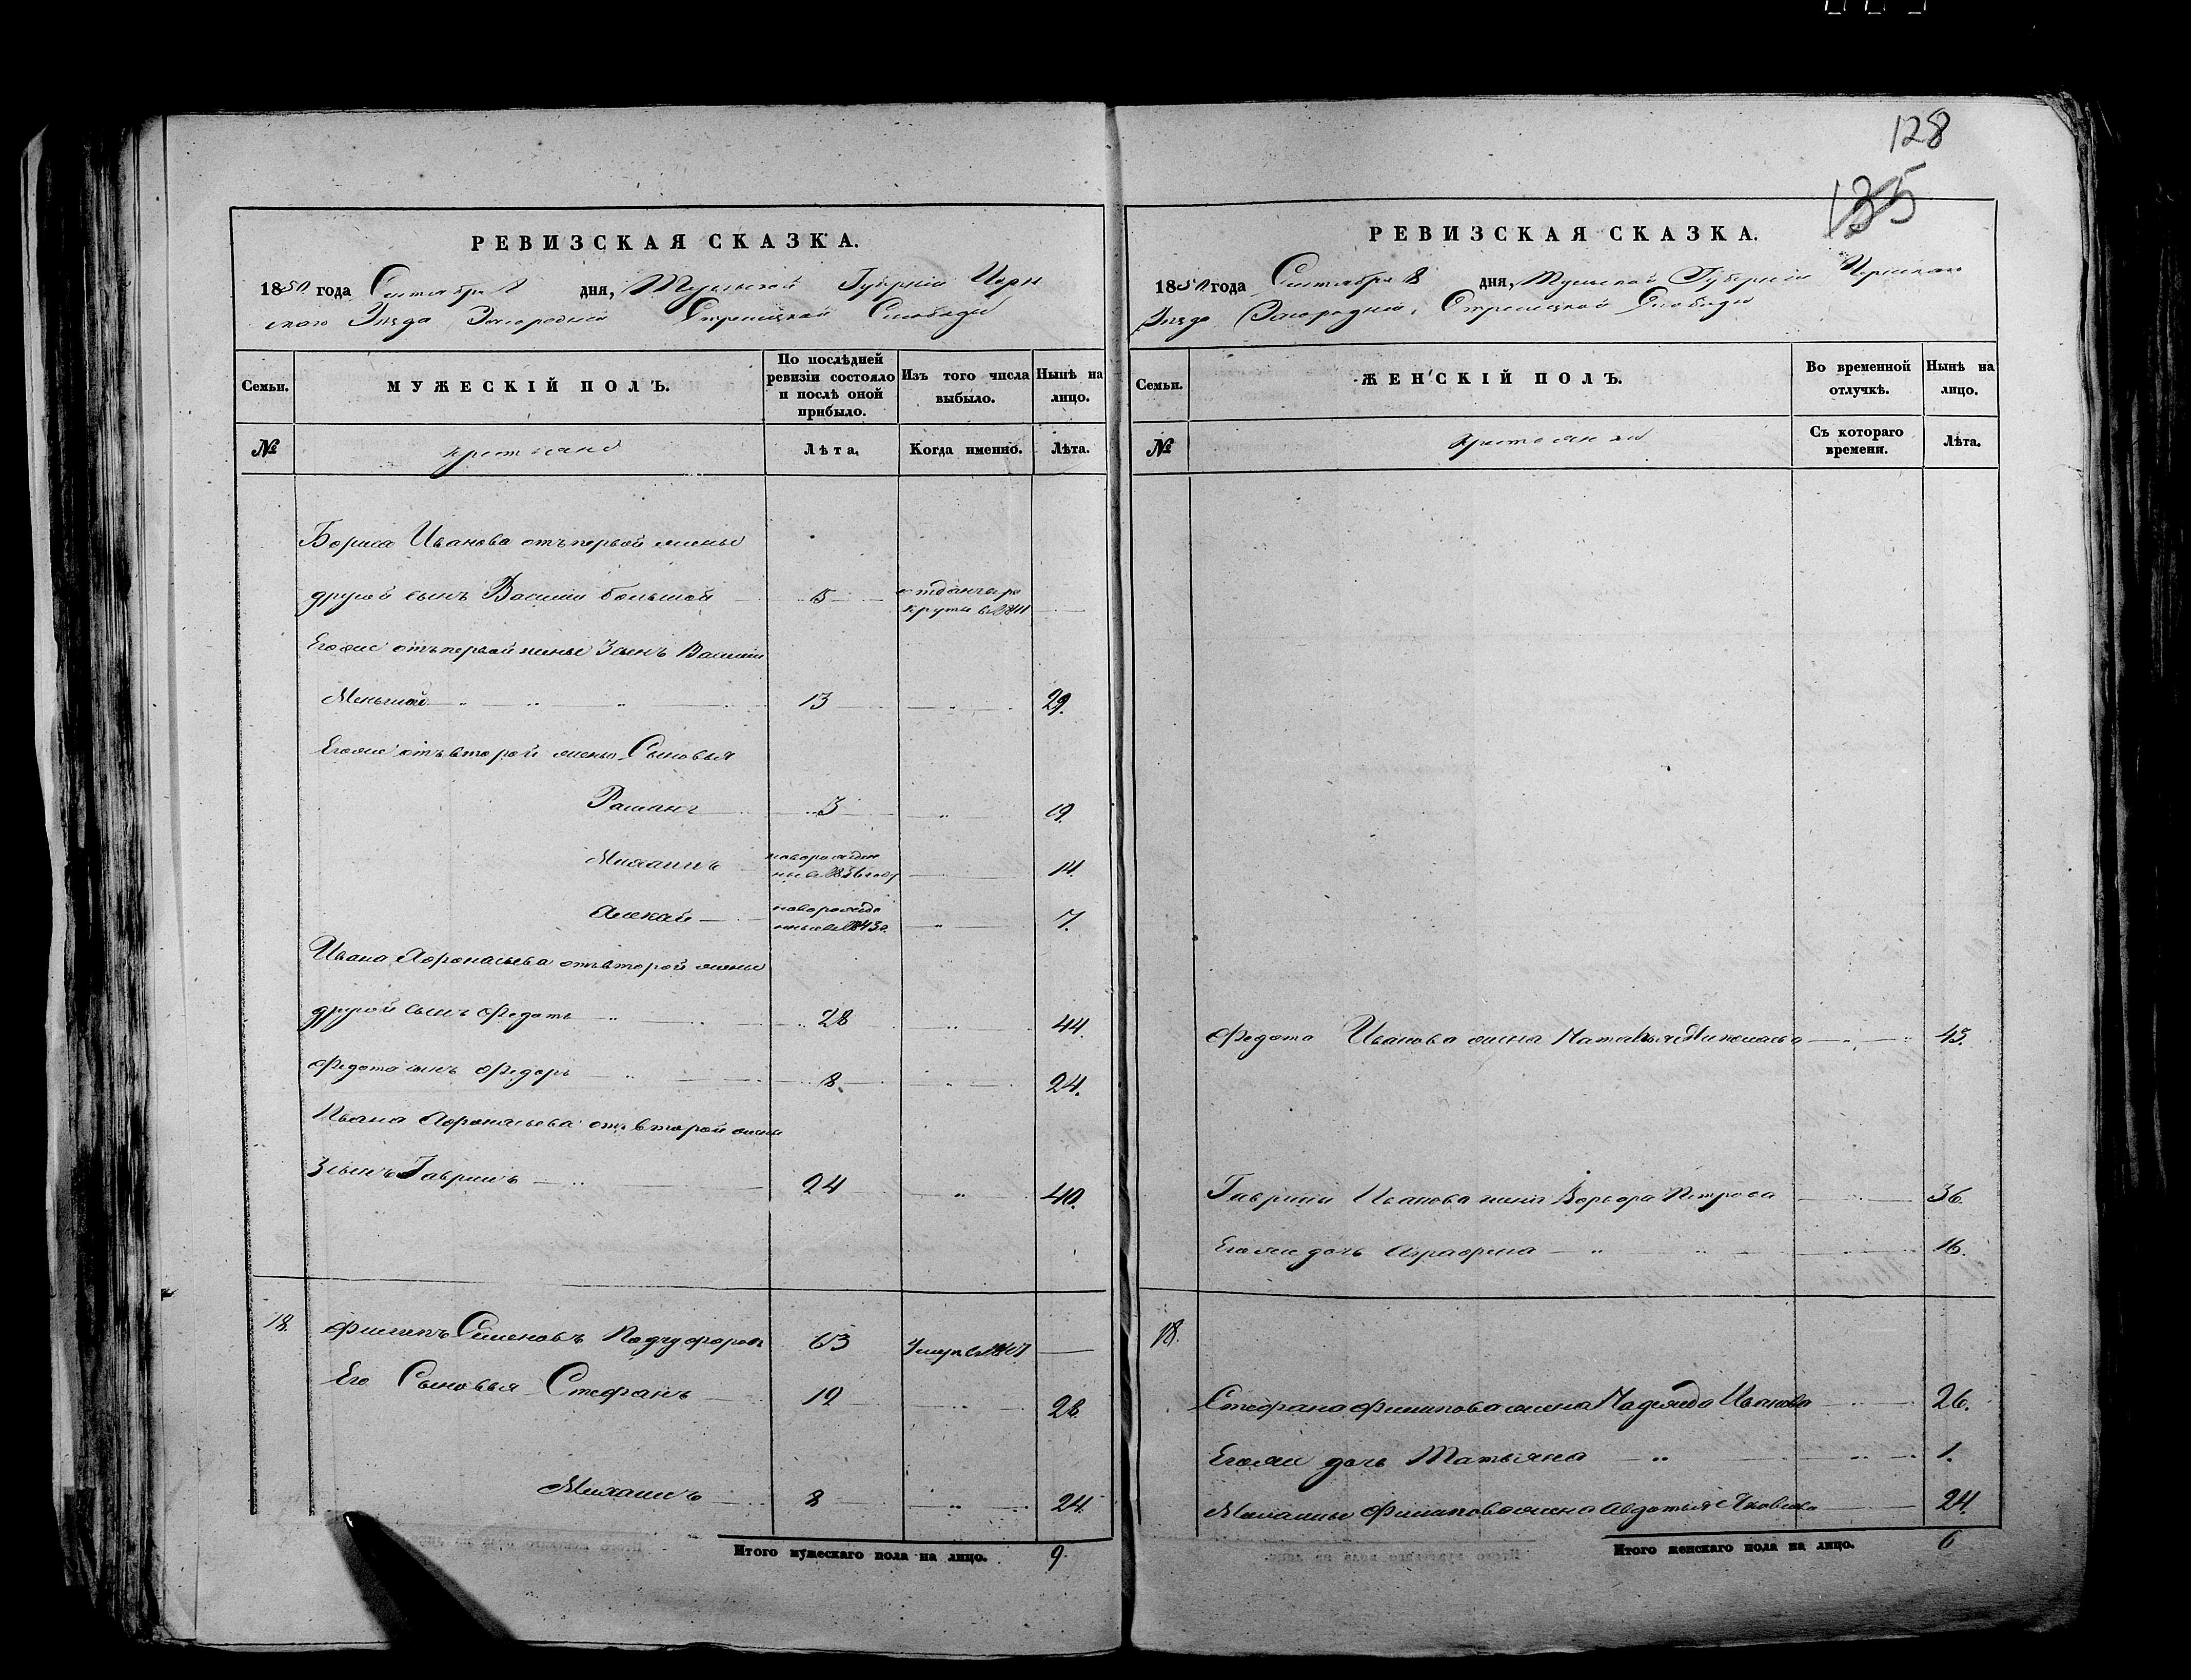 128
135
РЕВИЗСКАЯ СКАЗКА.
1850 года Сентября 8 дня, Тульской Губерніи Черн
скаго Уѣзда Загородней Стрелецкой Слободы
Семьи.
МУЖЕСКІЙ ПОЛЪ.
По послѣдней ревизіи состояло и послѣ оной прибыло.
Изъ того числа выбыло.
Нынѣ на лицо.
№
крестьяне
Лѣта.
Когда именно.
Лѣта.
Бориса Иванова отъ первой жены
другой сынъ Василій большой 15 отданъ в ре
круты в 1841
Егоже отъ первой жены 3 сынъ Василій
Меньшой 13 29.
Егоже отъ второй жены Сыновья
Раманъ 3 19.
Михаилъ новорожден
ный в 1836 году 14.
Алексай новорожде
нный в 1843 г. 7.
Ивана Афонасьева отъ второй жены
другой сынъ Федотъ 28 44.
Федота сынъ Федоръ 8. 24.
Ивана Афонасьева отъ второй жены
3 сынъ Гаврилъ 24 40.
18. Филипъ Семеновъ 63 Умеръ в
Его Сыновья Стефанъ 12 28.
Михаилъ 8 24.
Итого мужескаго пола на лицо. 9.
РЕВИЗСКАЯ СКАЗКА.
1850 года Сентября 8 дня, Тульской Губерніи Чернскаго
Уѣзда Загородней Стрелецкой Слободы
Семьи.
ЖЕНСКІЙ ПОЛЪ.
Во временной отлучкѣ.
Нынѣ на лицо.
№
крестьянки
Съ котораго времени.
Лѣта.
Федота Иванова жена Наталья 43.
Гаврилы Иванова жена Варвара Петрова 36.
Егоже дочь Аграфена 16.
18.
Стефана Филипова жена Надежда Иванова 26.
Егоже дочь Татьяна 1.
Михаилы Филипова жена Авдотья Яковлева 24.
Итого женскаго пола на лицо. 6